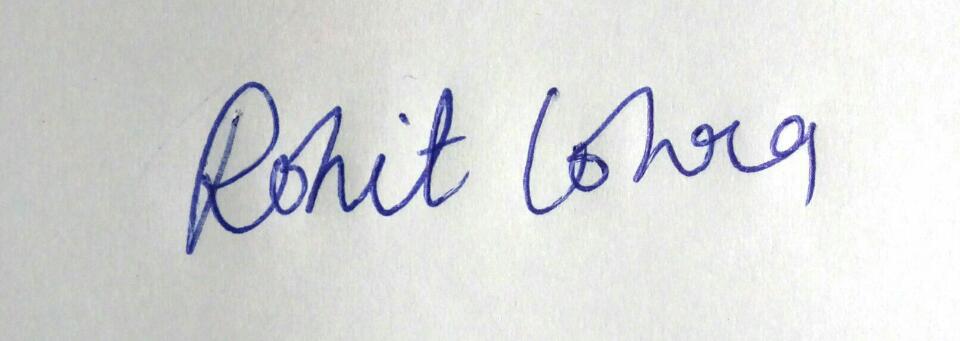 Rohit Lohra